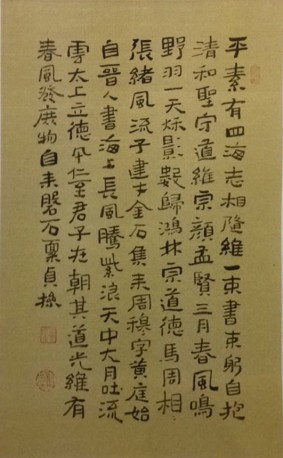 平素有四海志相隨維一束書束躬自抱
清和聖守道維宗顏孟賢三月春風鳴
野羽一天秋影數歸鴻林宗道德馬周相
張緒風流子建才金石集來周穆字黃庭始
自晉人書海上長風騰紫浪天中大月吐流
雲太上立德仁至君子在朝其道光維有
春風發庶物自來磐石稟貞操